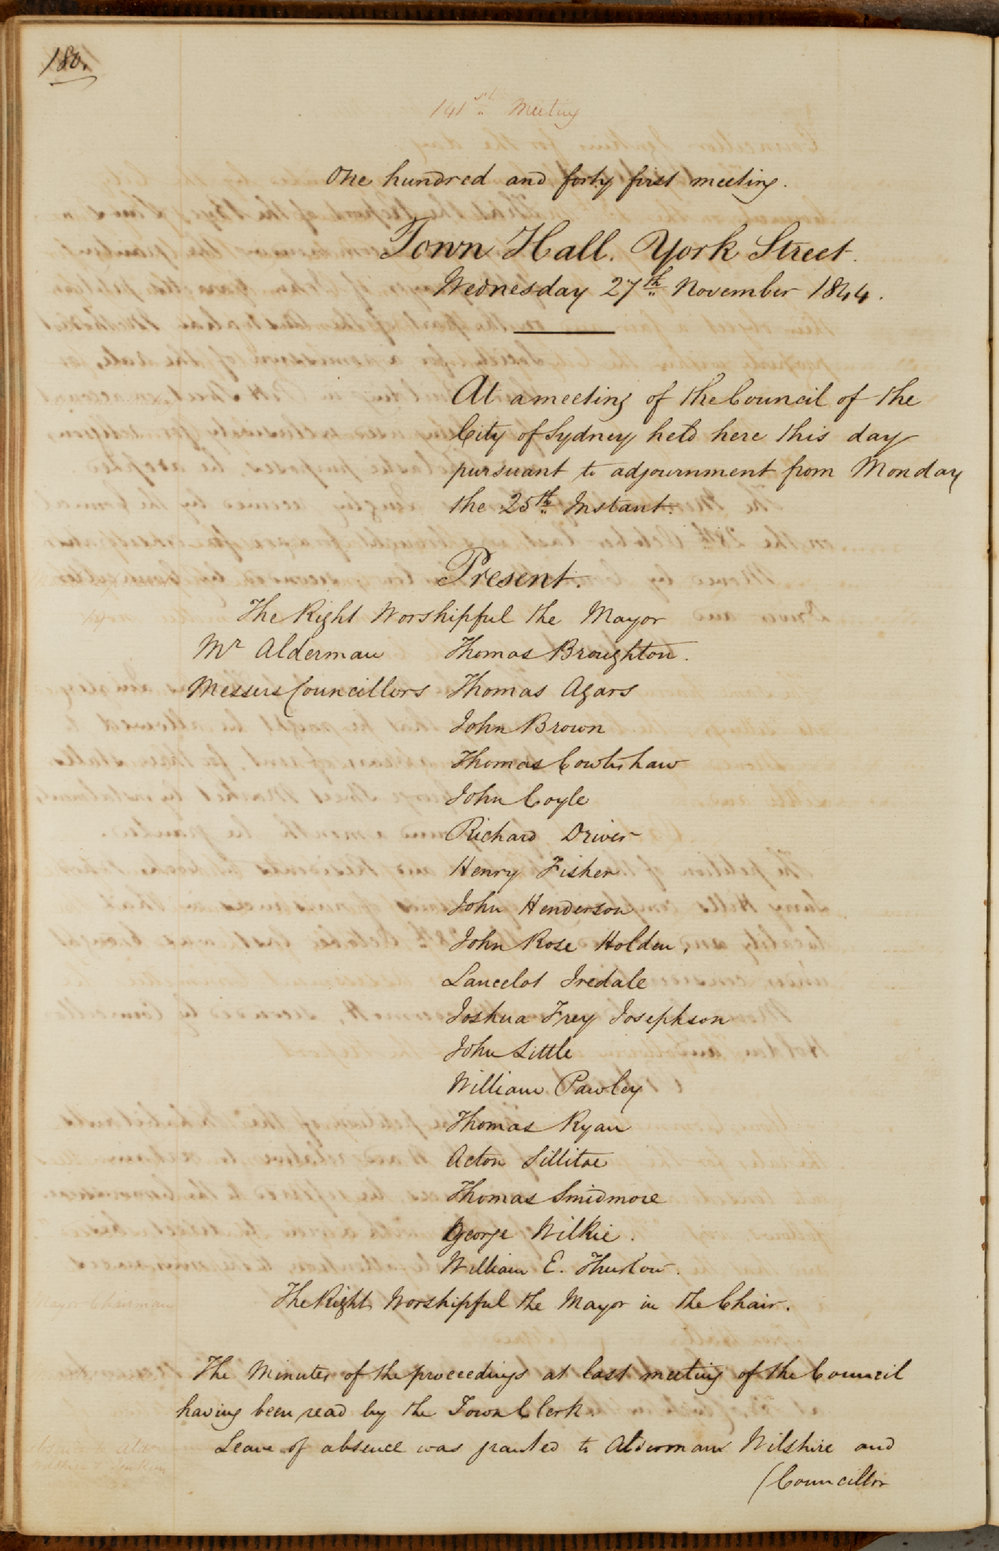 180.
141st Meeting
One hundred and forty first meeting.
Town Hall. York Street.
Wednesday 27th November 1844.
At a meeting of the Council of the
City of Sydney held here this day
pursuant to adjournment from Monday
the 25th Instant.
Present.
The Right Worshipful the Mayor
Mr Alderman Thomas Broughton.
Messrs Councillors Thomas Agars
John Brown
Thomas Cowlishaw
John Coyle
Richard Driver
Henry Fisher
John Henderson
John Rose Holden,
Lancelot Iredale
Joshua Frey Josephson
John Little
William Pawley
Thomas Ryan
Acton Sillitoe
Thomas Smidmore
George Wilkie.
William E. Thurlow.
Mayor Chairman
The Right Worshipful the Mayor in the Chair.
The Minutes of the proceedings at last meeting of the Council
having been read by the Town Clerk
Leave of absence was granted to Alderman Wilshire and
(Councillor